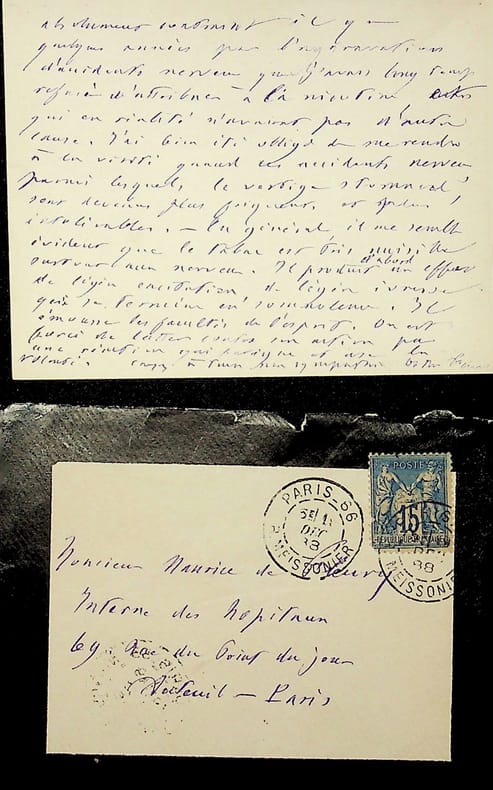 absolument continent il y a
quelques années par l'aggravation
d'accidents nerveux que j'avais longtemps
refusé d'attribuer à la nicotine, et
qui en réalité n'avaient pas d'autre
cause. J'ai bien été obligé de me rendre
à la vérité quand ces accidents nerveux
parmi lesquels le vertige stomacal,
sont devenus plus fréquents et plus
intolérables. — En général, il me semble
évident que le tabac est très nuisible
surtout aux nerveux. Il produit d'abord un effet
de légère excitation de légère ivresse
qui se termine en somnolence. Il
émousse les facultés de l'esprit. On est
forcé de lutter contre son action par
une réaction qui fatigue et use la
volonté. à tous
PARIS_66
DEC
88
R. MEISSONIER
POSTES
15
REPUBLIQUE FRANCAISE
PARIS
88
MEISSONIER
Monsieur Maurice de Fleury
Interne des hopitaux
69 Rue du Point du jour
Auteuil — Paris